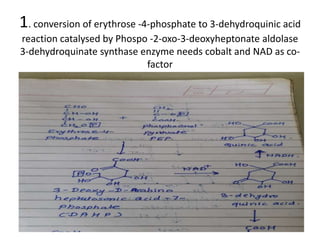 1. conversion of erythrose -4-phosphate to 3-dehydroquinic acid
reaction catalysed by Phospo -2-oxo-3-deoxyheptonate aldolase
3-dehydroquinate synthase enzyme needs cobalt and NAD as co-
factor
CHO
CH-OH
CH-OH
+
COOH
HO COOH
Erythrose-4-
Phosphate
phosphoenol
pyruvate
PEP
OH
quinic acid
COOH
NADH
NAD+
HO COOH
HO
OH
OH
3-Deoxy-D-Arabino
heptulosonic acid-7-
phosphate
(DAHP)
3-dehydro
quinic acid
COOH